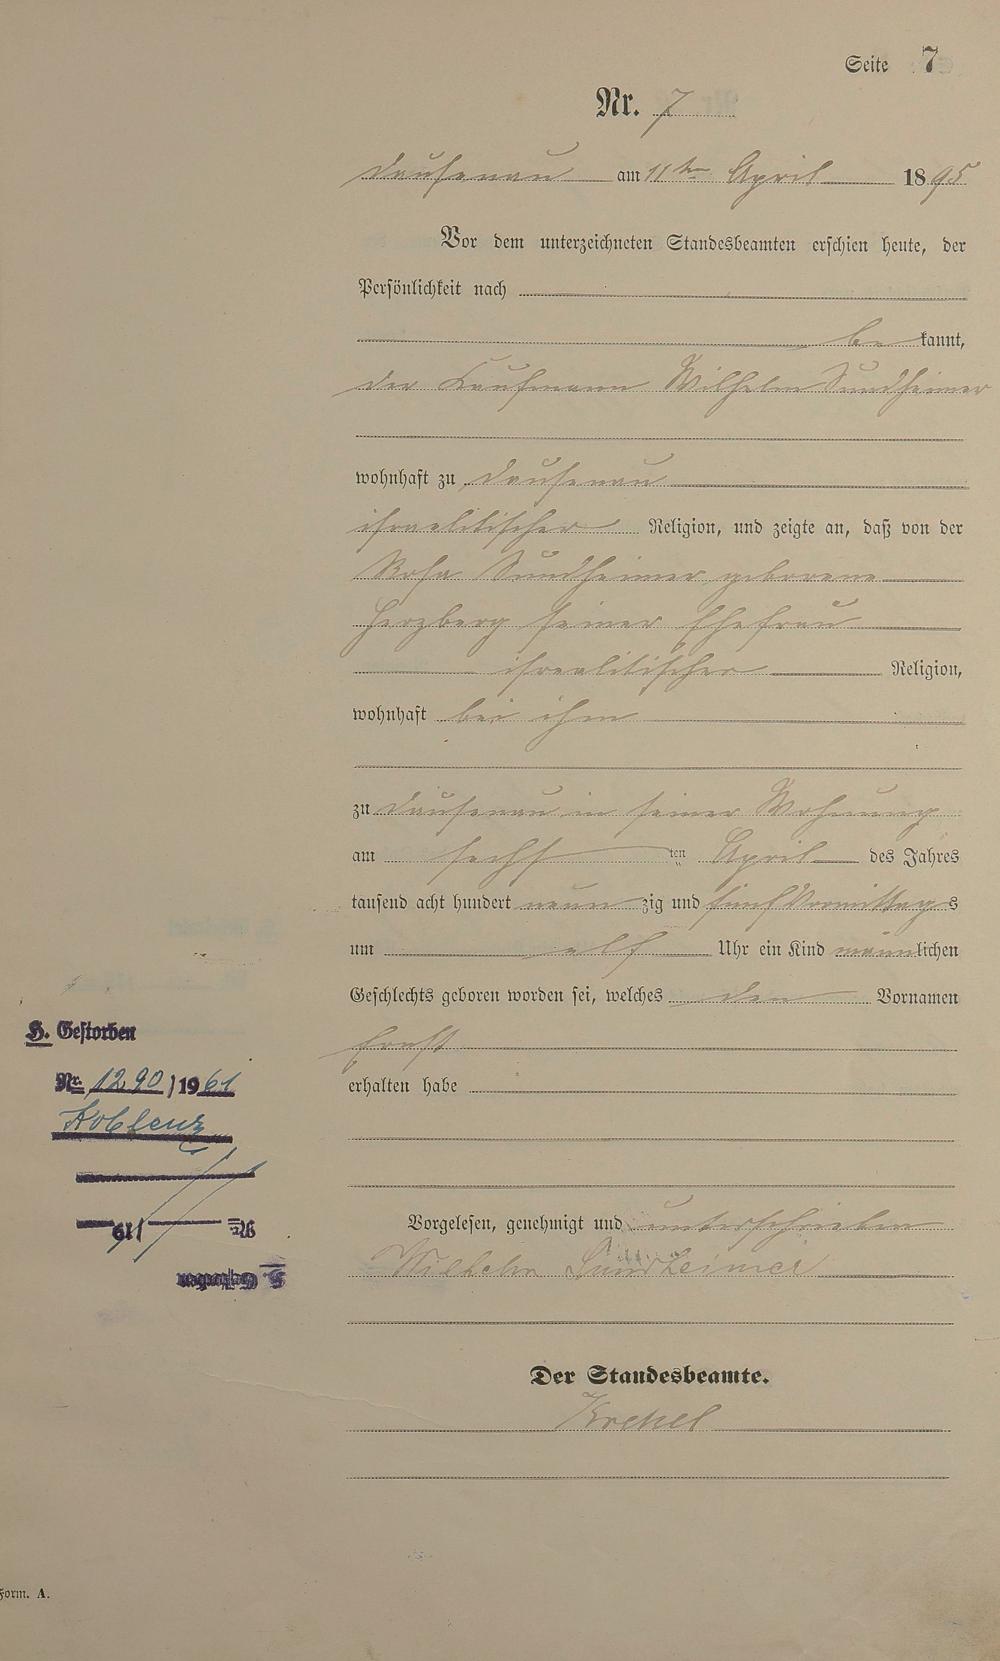 Seite 7
Nr. 7
Dausenau am 11ten April 1895
Vor dem unterzeichneten Standesbeamten erschien heute, der
Persönlichkeit nach
bekannt,
der Kaufmann Wilhelm Sundheimer
wohnhaft zu Dausenau
israelitischer Religion, und zeigte an, daß von der
Rosa Sundheimer geborene
Herzberg seiner Ehefrau
israelitischer Religion,
wohnhaft bei ihm
zu Dausenau in seiner Wohnung
am sechsten April des Jahres
tausend acht hundert neunzig und fünf Vormittags
um elf Uhr ein Kind männlichen
Geschlechts geboren worden sei, welches den Vornamen
Ernst
erhalten habe
H. Gestorben
Nr. 1290/1961
Koblenz
Nr. /19
H. Gestorben
Vorgelesen, genehmigt und unterschrieben
Wilhelm Sundheimer
Der Standesbeamte.
Krekel
Form. A.